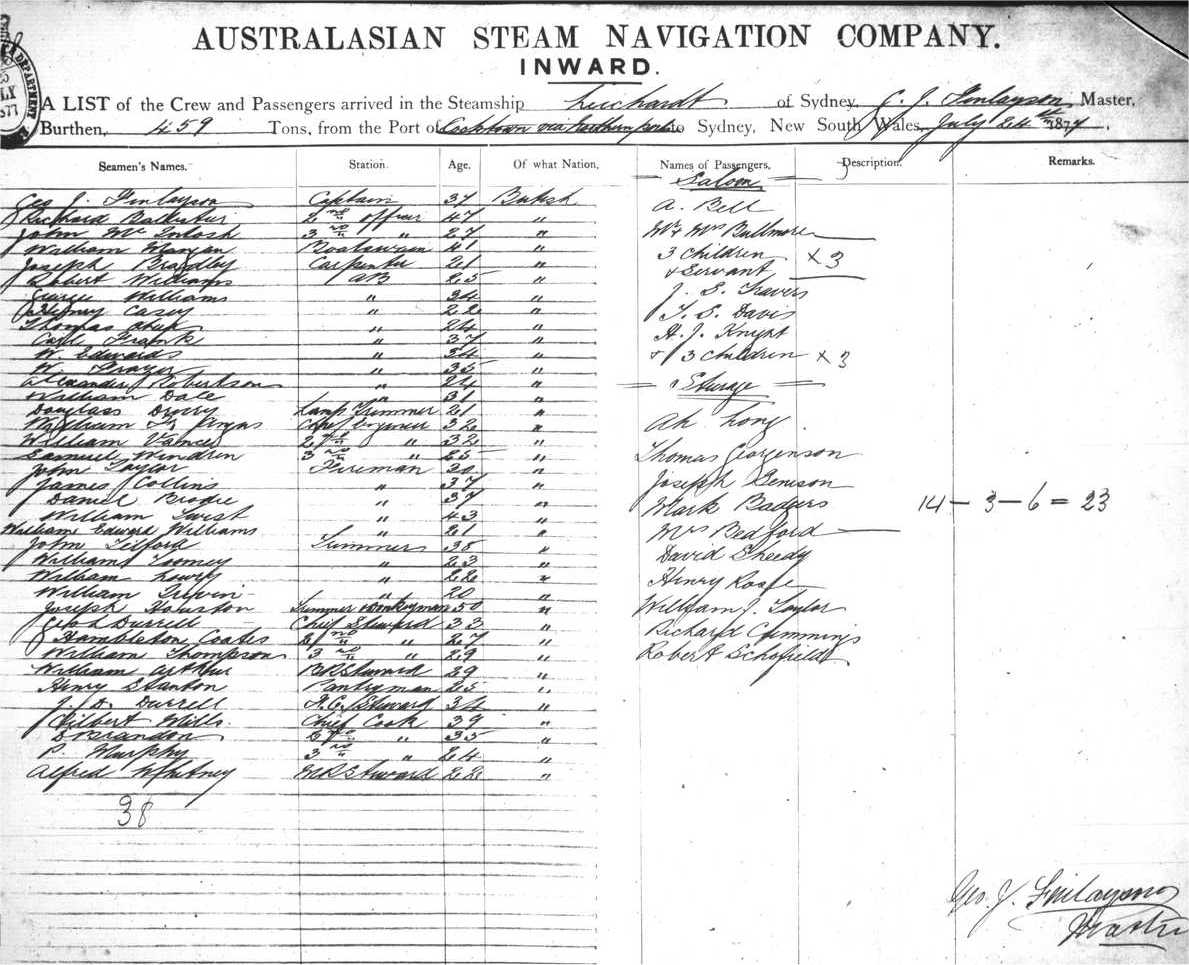 DEPARTMENT
LY
877
AUSTRALASIAN STEAM NAVIGATION COMPANY.
INWARD.
A LIST of the Crew and Passengers arrived in the Steamship Leichardt of Sydney, G. J. Finlayson Master,
Burthen, 459 Tons, from the Port of Cooktown via Northern ports to Sydney, New South Wales, July 24th 1877
Seamen's Names. Station. Age. Of what Nation, Names of Passengers, Description. Remarks.
Saloon
Geo J. Finlayson Captain 37 British
A. Bell
Richard 2nd officer 47 "
John McIntosh 3rd " 27 "
Mr & Mrs Bullmore
William Morgan Boatswain 41 "
3 children × 3
Joseph Bradley Carpenter 21 "
& Servant
Robert Williams AB 25 "
George Williams " 34 "
J. S. Travers
Sidney Casey " 22 "
T. S. Davis
Thomas " 24 "
Carl Frank " 37 "
H. J. Knight
W. Edwards " 34 "
& 3 children × 3
W. Frazer " 35 "
Alexander Robertson " 24 "
= Steerage =
William Dale " 31 "
Douglass Drury Lamp Trimmer 21 "
William Angus Chief Engineer 32 "
Ah Long
William Vance 2nd " 32 "
Samuel Windren 3rd " 25 "
Thomas Georgenson
John Taylor Fireman 30 "
James Collins " 37 "
Joseph Denison
Daniel Brodie " 37 "
Mark Badgers 14 – 3 – 6 = 23
William Twist " 43 "
William Edward Williams " 21 "
Mrs Bedford
John Tilford Trimmers 38 "
David Sheedy
William Toomey " 23 "
William Lowry " 22 "
Henry Roafe
William " 20 "
Joseph Houston Trimmer & Donkeyman 50 "
William J. Taylor
Geo L Durrell Chief Steward 33 "
Richard Cummings
Hambleton Coates 2nd " 27 "
William Thompson 3rd " 29 "
Robert Schofield
William Arthur B R Steward 29 "
Henry Stanton Pantryman 25 "
J. D. Durrell F.C. Steward 34 "
Gilbert Mills. Chief Cook 39 "
D Brandon 2nd " 35 "
P. Murphy 3rd " 24 "
Alfred Whitney M R Steward 22 "
38
Geo. J. Finlayson
Master